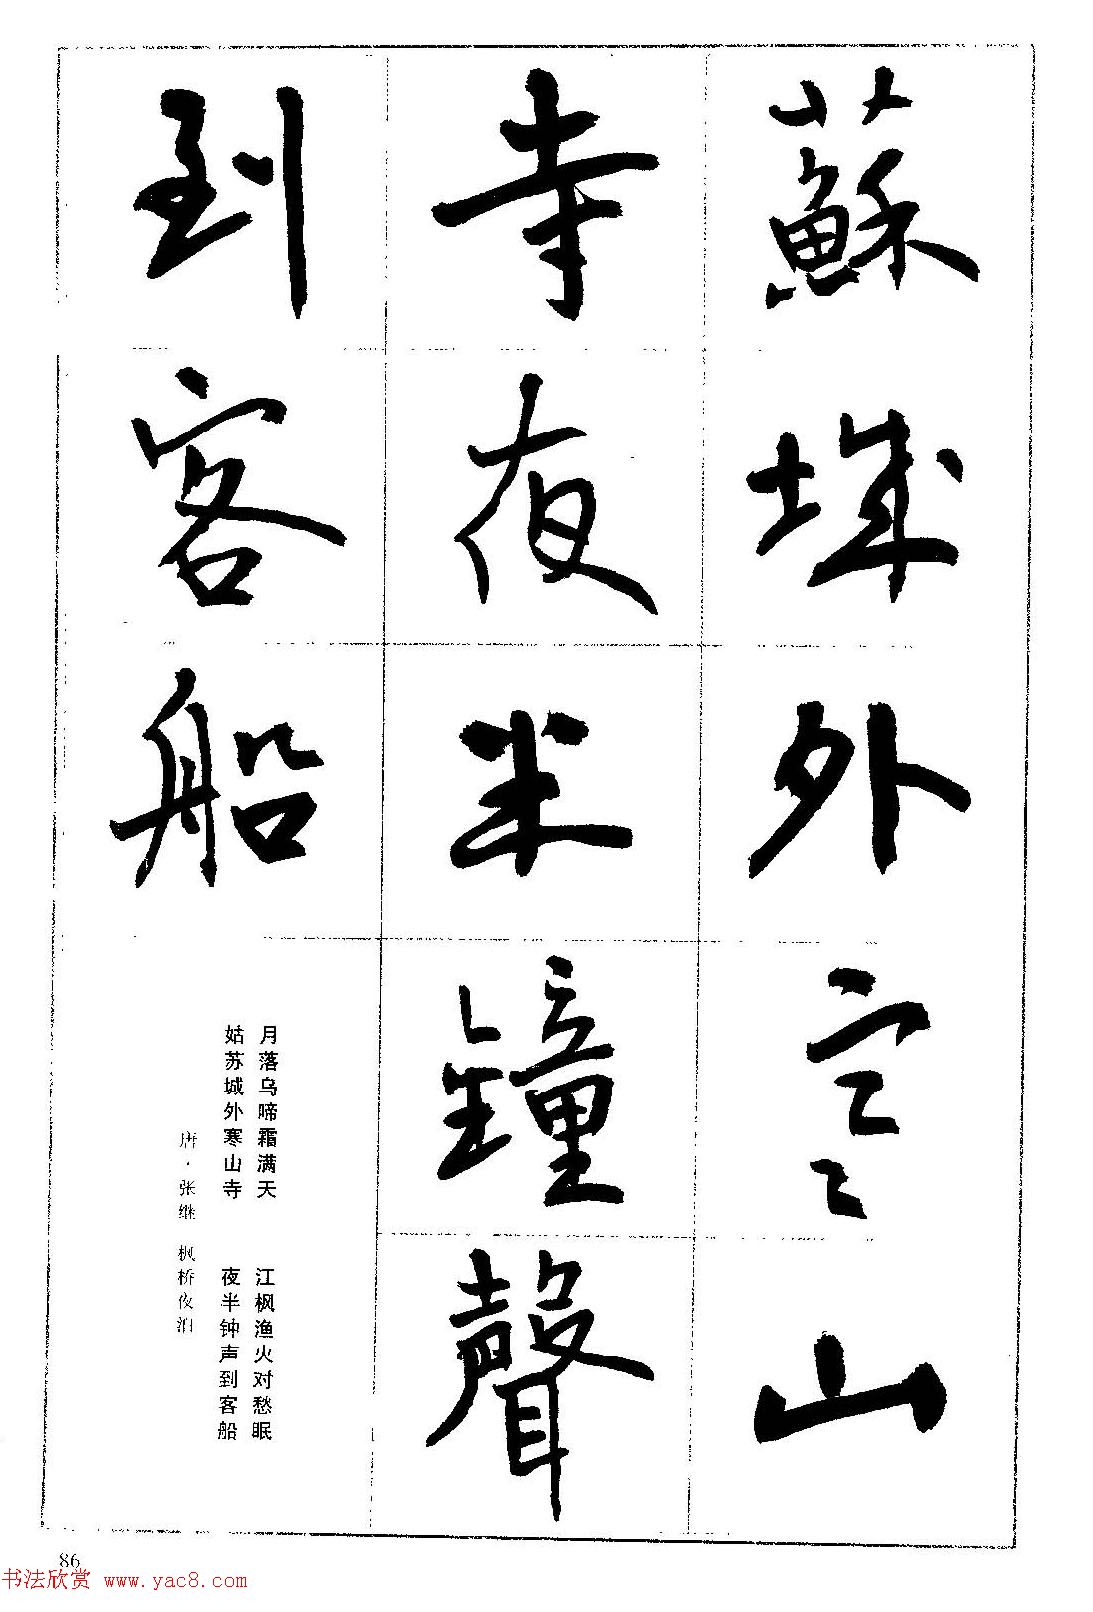 蘇城外寒山
寺夜半鐘聲
到客船
月落乌啼霜满天 江枫渔火对愁眠
姑苏城外寒山寺 夜半钟声到客船
唐·张继 枫桥夜泊
86
书法欣赏 www.yac8.com